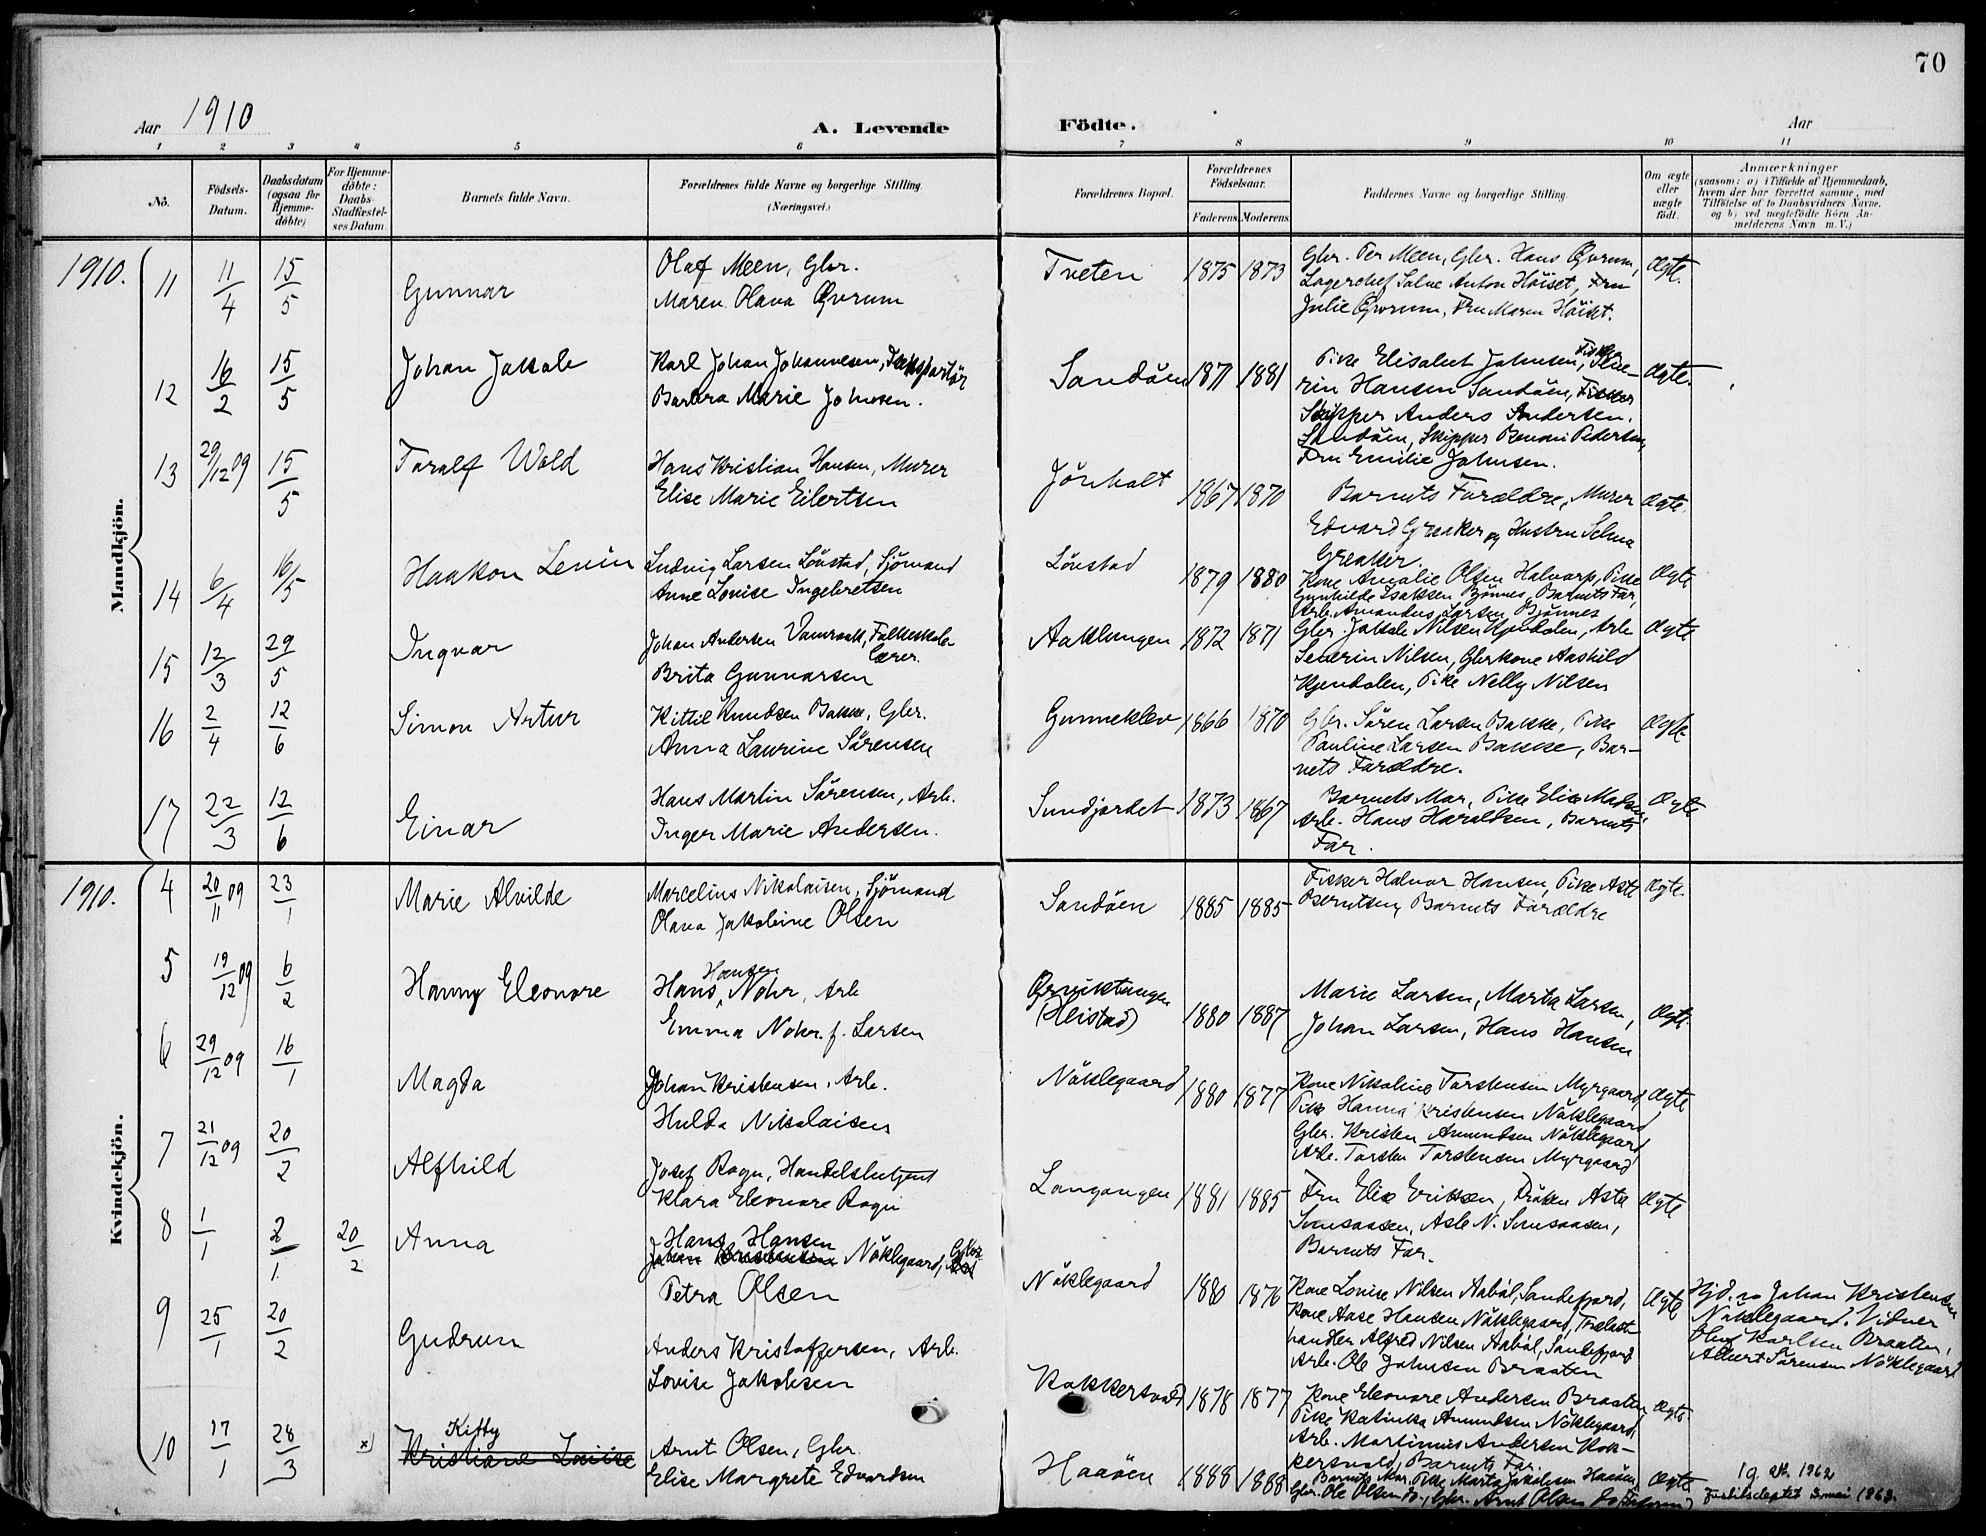 70
Aar 1910
A. Levende Födte.
Aar
1 2 3 4 5 6 7 8 9 10 11
No.
Födsels-Datum.
Daabsdatum (ogsaa for Hjemmedöbte)
For Hjemmedöbte: Daabs-Stadfæstelses Datum.
Barnets fulde Navn.
Forældrenes fulde Navne og borgerlige Stilling. (Næringsvei.)
Forældrenes Bopæl.
Forældrenes Födselsaar.
Faderens. Moderens.
Faddernes Navne og borgerlige Stilling.
Om ægte eller uægte födt.
Anmærkninger
(saasom: a) i Tilfælde af Hjemmedaab, hvem der har forrettet samme, med Tilföielse af to Daabsvidners Navne, og b) ved uægtefödte Börn Anmelderens Navn m.V.)
Mandkjön.
1910. 11 11/4 15/5 Gunnar
Olaf Meen, Gbr.
Maren Olava Qvrum
Tveten 1875 1873
Gbr. Per Meen, Gbr. Hans Qvrum,
Lagerchef Salve Anton Höiset, Fru
Julie Qvrum, Fru Maren Höiset.
Ægte.
12 16/2 15/5 Johan Jakob
Karl Johan Johannesen,
Barbra Marie Johnsen.
Sandöen 1871 1881
Pike Elisabet Johnsen, Fisker
Hansen Sandöen,
Skipper Anders Andersen.
Sandöen, Skipper Benoni Pedersen,
Fru Emilie Johnsen.
Ægte.
13 29/12 09 15/5 Toralf Wold
Hans Kristian Hansen, Murer
Elise Marie Eilertsen
Jönholt 1867 1870
Barnets Forældre, Murer
Edvard Greaker og Hustru Selma
Greaker.
Ægte.
14 6/4 16/5 Haakon Levin
Ludvig Larsen Lönstad, Sjömand
Anne Lovise Ingebretsen
Lönstad 1879 1880
Kone Amalie Olsen Halvarp, Pike
Gunhilde Isaksen Bjönnes, Barnets Far,
Arb. Amandus Larsen Bjönnes
Ægte
15 12/3 29/5 Ingvar
Johan Andersen, Folkeskolelærer.
Brita Gunnarsen
Aaklungen 1872 1871
Gbr. Jakob Nilsen Kjendalen, Arb.
Severin Nilsen, Gbrkone Aashild
Kjendalen, Pike Nelly Nilsen
Ægte
16 2/4 12/6 Simon Artur
Kittil Knudsen Bakke, Gbr.
Anna Laurine Sörensen
Gunneklev 1866 1870
Gbr. Sören Larsen Bakke, Pike
Pauline Larsen Bakke, Bar-
nets Forældre.
Ægte
17 22/3 12/6 Einar
Hans Martin Sörensen, Arb.
Inger Marie Andersen.
Sundjordet 1873 1867
Barnets Mor, Pike Elise Madsen,
Arb. Hans Haraldsen, Barnets
Far.
Ægte
Kvindekjön.
1910. 4 20/11 09 23/1 Marie Alvilde
Marcelius Nikolaisen, Sjömand
Olava Jakobine Olsen
Sandöen 1885 1885
Fisker Halvor Hansen, Pike Asta
Berntsen, Barnets Forældre
Ægte.
5 19/12 09 6/2 Hanny Eleonore
Hansen
Hans Nohr, Arb
Emma Nohr f. Larsen
Örviktangen
(Heistad) 1880 1887
Marie Larsen, Marta Larsen,
Johan Larsen, Hans Hansen
Ægte.
6 29/12 09 16/1 Magda
Johan Kristensen, Arb.
Hulda Nikolaisen
Nöklegaard 1880 1877
Kone Nikoline Torstensen Myrgaard,
Pike Hanna Kristensen Nöklegaard
Gbr. Kristen Amundsen Nöklegaard
Arb. Torsten Torstensen Myrgaard
Ægte
7 21/12 09 20/2 Alfhild
Josef Rogn, Handelsbetjent
Klara Eleonore Rogn
Langangen 1881 1885
Fru Elise Eriksen, Fröken Asta
Barnets Far.
Ægte
8 1/1 2/1 20/2 Anna
Hans Hansen
Johan Kristensen Nöklegaard, Gbr.
Petra Olsen
Nöklegaard 1880 1876
Kone Lovise Nilsen Aaböl, Sandefjord,
Kone Aase Hansen Nöklegaard, Trælast-
handler Alfred Nilsen Aaböl, Sandefjord
Arb. Ole Johnsen Braaten
Ægte
Hjd. av Johan Kristensen
Nöklegaard. Vidner
Oluf Karlsen Braaten,
Albert Sörensen Nöklegaard
9 25/1 20/2 Gudrun
Anders Kristoffersen, Arb.
Lovise Jakobsen
Kokkersvold 1878 1877
Kone Eleonore Andersen Braaten
Pike Katinka Amundsen Nöklegaard,
Arb. Martinius Andersen Kok-
kersvold, Barnets Far.
Ægte
10 17/1 28/3 x)
Kitty
Kristiane Louise
Arnt Olsen, Gbr.
Elise Margrete Edvardsen
Haaöen 1888 1888
Barnets Mor, Pike Marta Jakobsen Haaöen,
Gbr. Ole Olsen do., Gbr. Arnt Olsen do
Ægte
19. okt. 1962
1963.